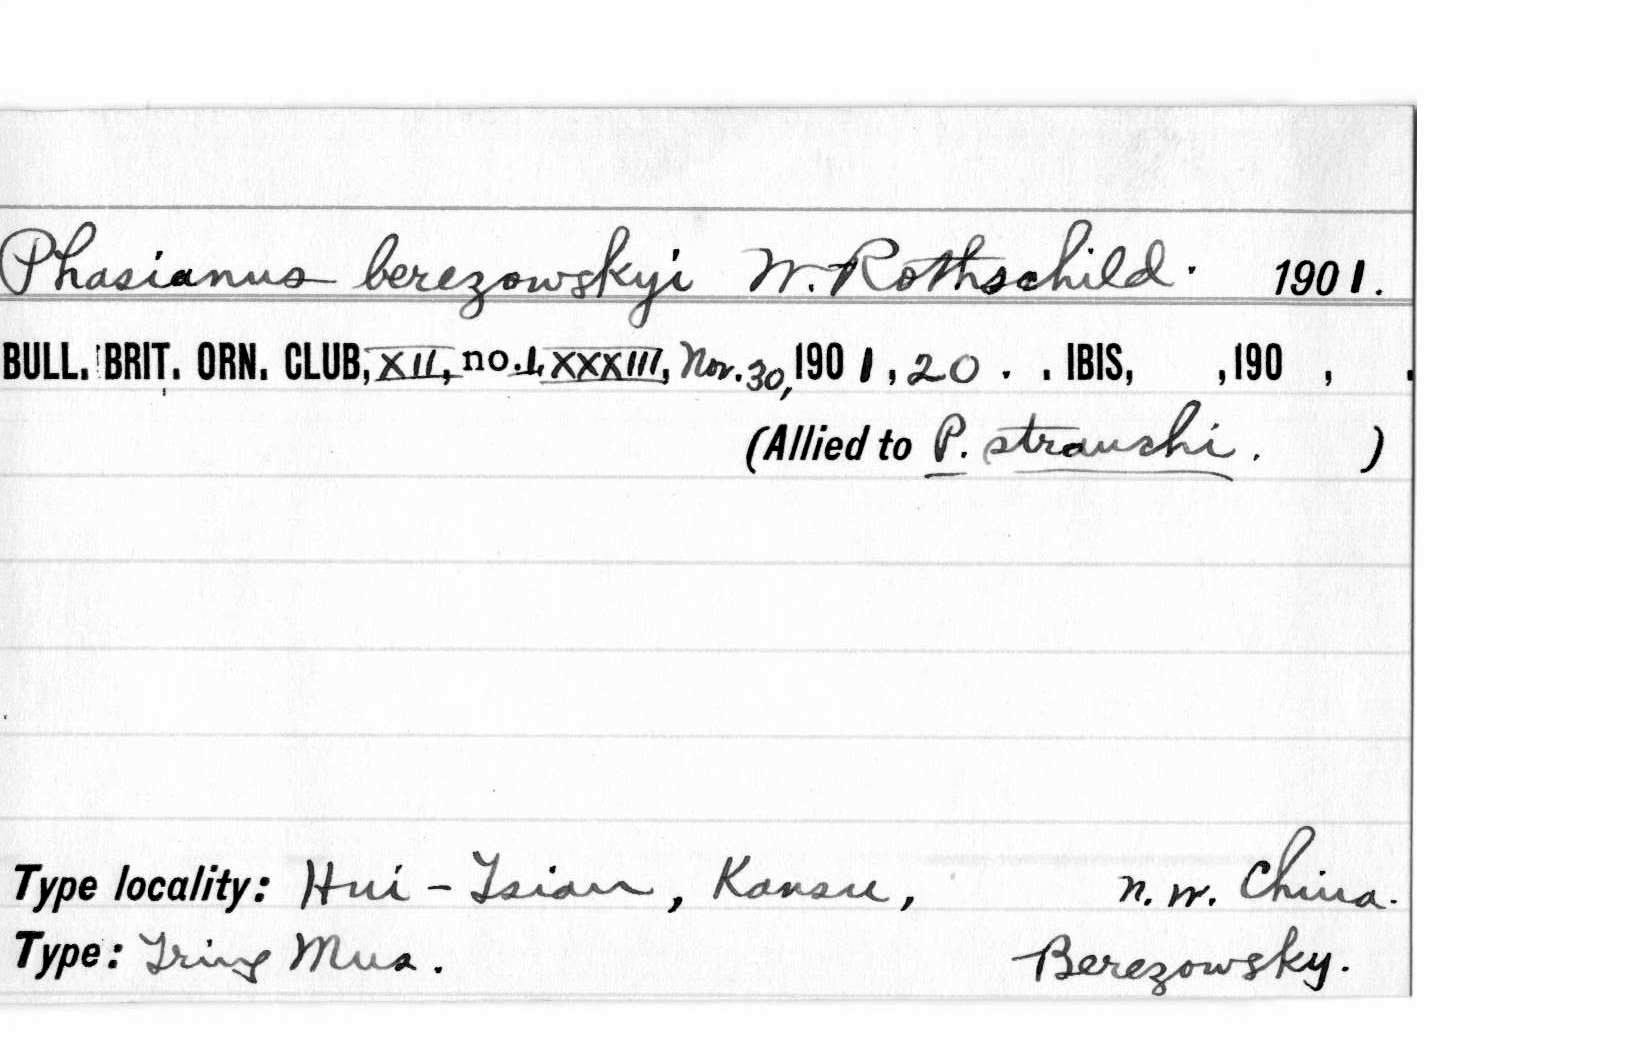 Phasianus berezowskyi W. Rothschild. 1901.
BULL. BRIT. ORN. CLUB, XII, no. LXXXIII, Nov. 30, 1901, 20 . . IBIS, , 190 , .
(Allied to P. strauchi. )
Type locality: Hui-Tsian, Kansu, N. W. China.
Type: Tring Mus. Berezowsky.